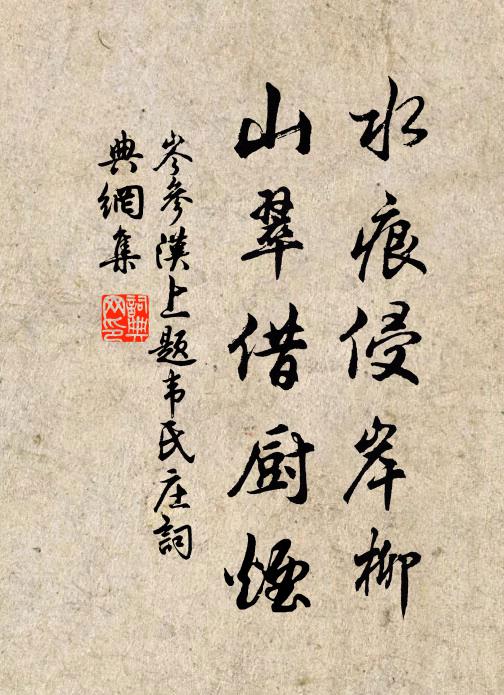 水痕侵岸柳
山翠借厨煙
岑參漢上題韦氏庄詞
典網集
詞典
网印